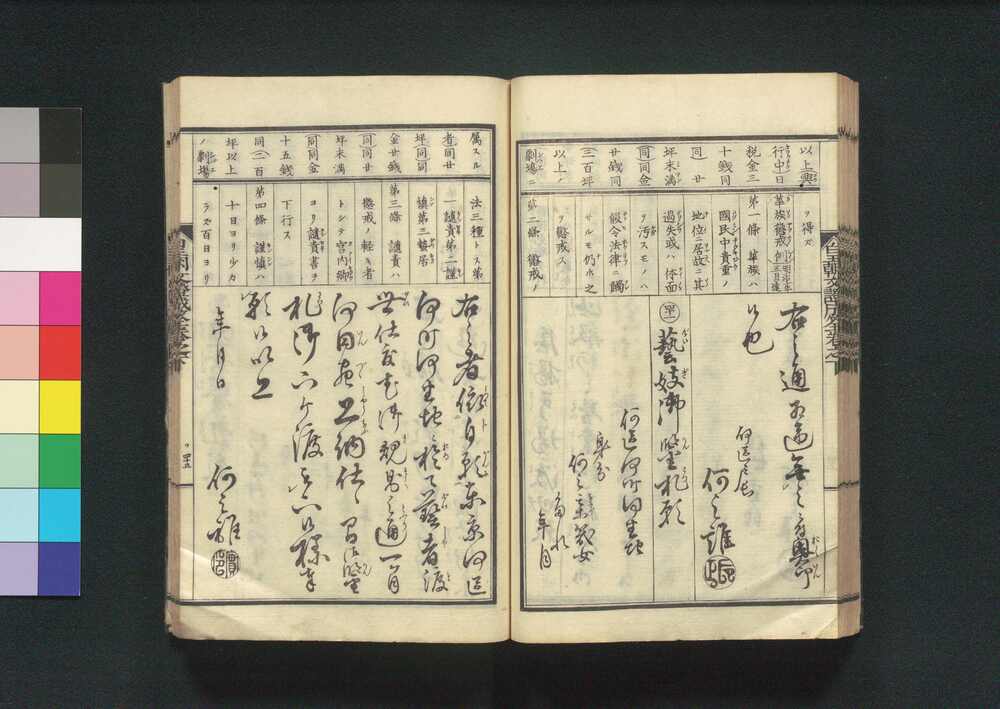 以上輿
行中日
税金三
十銭同
同廿
坪未満
同同金
廿銭同
三百坪
以上ノ
劇場ニ
ヲ得ズ
華族懲戒例
第一條 華族ハ
國民中貴重ノ
地位ニ居故ニ其
過失或ハ体面
ヲ汚スモノハ
假令法律ニ觸
サルモ仍ホ之
ヲ懲戒ス
第二條 懲戒ノ
右之通相違無之ニ付奥印
候也
何區長
何之誰
藝妓御鑒札願
何區何町何番地
身分
何之誰幾女
藝名 たれ
年月
属スル
者同廿
坪同同
金廿銭
同同廿
坪未満
同同金
十五銭
同三百
坪以上
ノ劇場
法三種トス第
一譴責第二謹
慎第三蟄居
第三條 譴責ハ
懲戒ノ軽キ者
トシテ宮内卿
ヨリ譴責書ヲ
下行ス
第四條 謹慎ハ
十日ヨリ少カ
ラズ百日ヨリ
右之者儀自今東京何區
何町何番地ニ於テ藝者渡
世仕度尤御規則之通一ヶ月
何圓宛上納仕候間御鑒
札御下ヶ渡被下候様奉
願候以上
年月日
何之誰
四十五